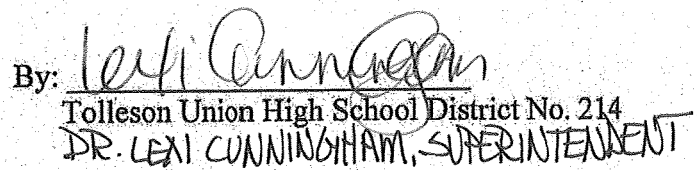 By: Lexi Cunningham
Tolleson Union High School District No. 214
DR. LEXI CUNNINGHAM, SUPERINTENDENT